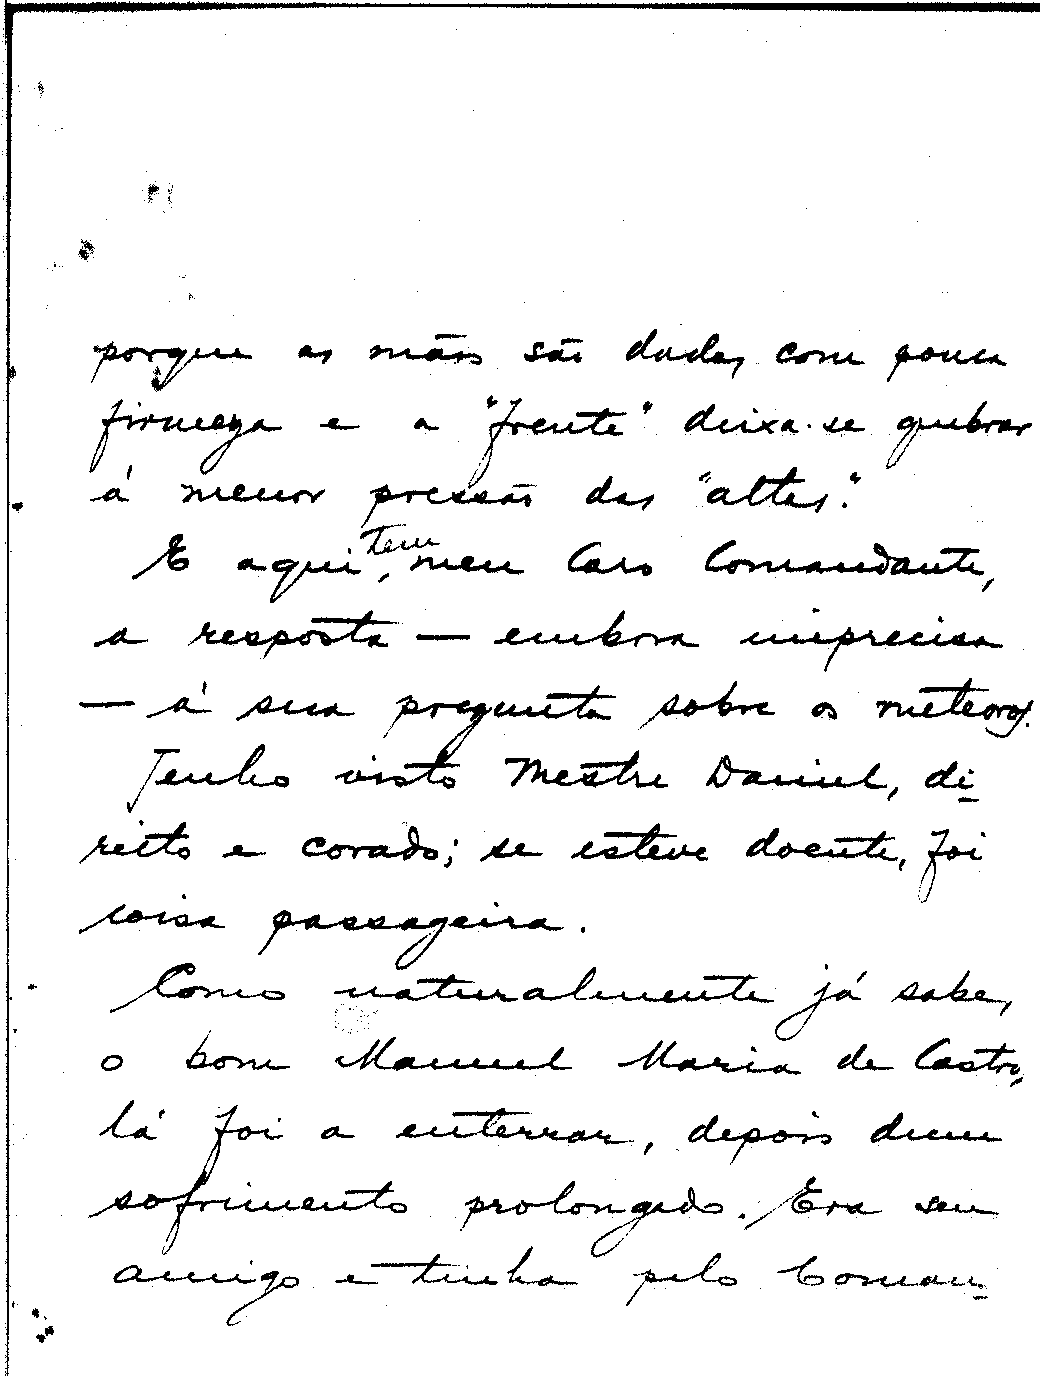 porque as mãos são dadas com pouca
firmeza e a "frente" deixa-se quebrar
á menor pressão das "altas".
E aqui tem, meu Caro Comandante,
a resposta — embora imprecisa
— á sua pregunta sobre os meteoros.
Tenho visto Mestre Daniel, di-
reito e corado; se esteve doente, foi
coisa passageira.
Como naturalmente já sabe,
o bom Manuel Maria de Castro,
lá foi a enterrar, depois dum
sofrimento prolongado. Era seu
amigo e tinha pelo Coman-